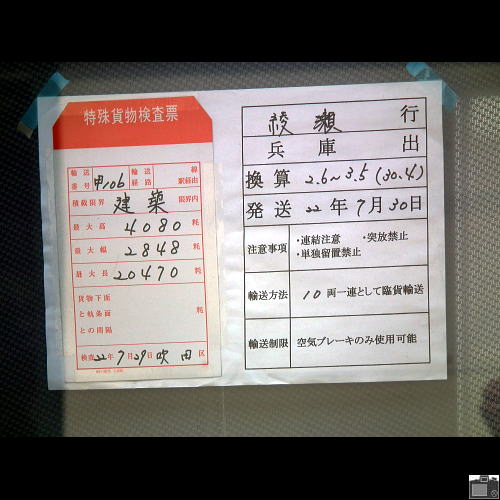 特殊貨物検査票
輸送番号 甲106 輸送経路 線 駅経由
積載限界 建築 限界内
最大高 4080 粍
最大幅 2848 粍
最大長 20470 粍
貨物下面
と軌条面 粍
との間隔
検査 22年7月29日 吹田区
綾瀬 行
兵庫 出
換算 2.6~3.5 (30.4)
発送 22年7月30日
注意事項 ・連結注意 ・突放禁止
・単独留置禁止
輸送方法 10両一連として臨貨輸送
輸送制限 空気ブレーキのみ使用可能